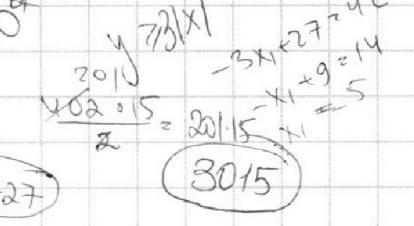 y ≥ 3|x|
-3x₁+27=42
-x₁+9=14
x₁=-5
201
402·15
2
= 201·15
3015
27